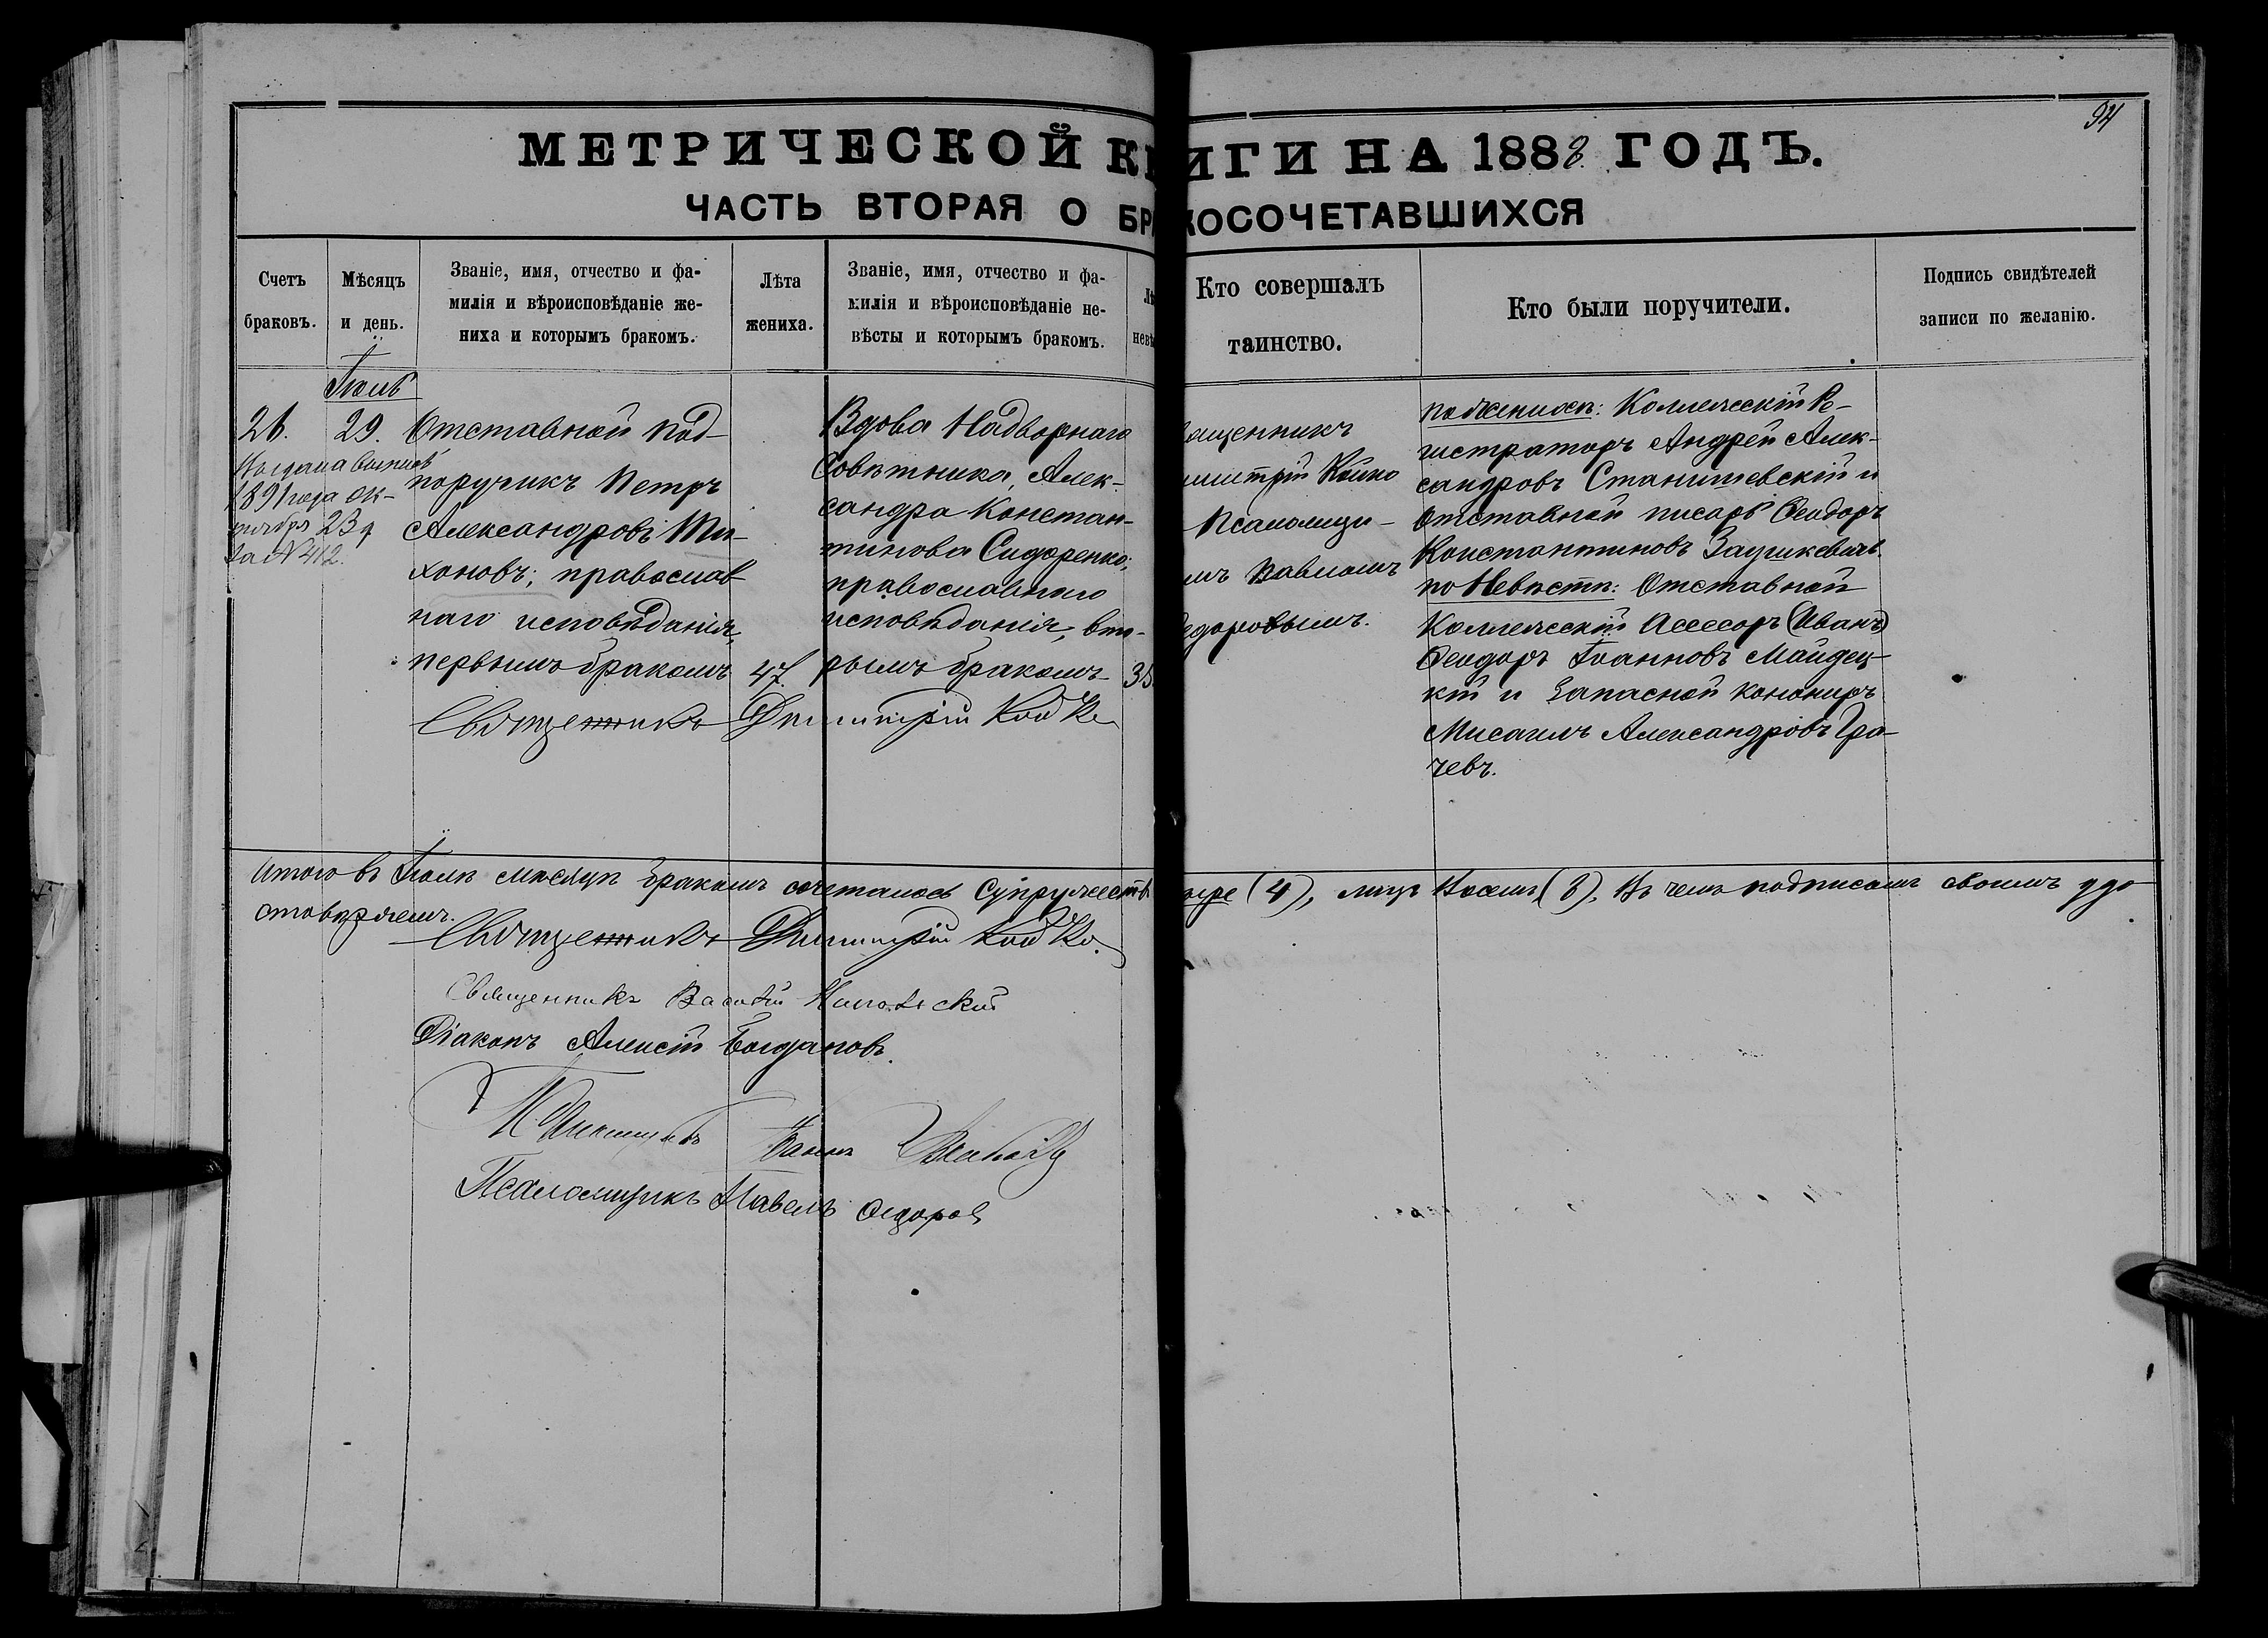 94
МЕТРИЧЕСКОЙ КНИГИ НА 1888 ГОДЪ.
ЧАСТЬ ВТОРАЯ О БРАКОСОЧЕТАВШИХСЯ
Счетъ
браковъ.
Мѣсяцъ
и день.
Званіе, имя, отчество и фа-
милія и вѣроисповѣданіе же-
ниха и которымъ бракомъ.
Лѣта
жениха.
Званіе, имя, отчество и фа-
милія и вѣроисповѣданіе не-
вѣсты и которымъ бракомъ.
Кто совершалъ
таинство.
Кто были поручители.
Подпись свидѣтелей
записи по желанію.
26.
1891 года ок-
тября 23 д
за № 412.
Іюль
29.
Отставной под-
поручикъ Петръ
Александровъ Ти-
хоновъ; православ-
наго исповѣданія,
первымъ бракомъ
47
Вдова Надворнаго
Совѣтника, Алек-
сандра Констан-
тинова Сидоренко;
православнаго
исповѣданія, вто-
рымъ бракомъ
Священникъ Димитрій Койко
ященникъ
митрій Койко
Псаломщи-
мъ Павломъ
едоровымъ.
по Женихѣ: Коллежскій Ре-
гистраторъ Андрей Алек-
сандровъ Станишевскій и
Отставной писарь Ѳеодоръ
Константиновъ
по Невѣстѣ: Отставной
Коллежскій Ассесоръ (Иванъ)
Ѳеодоръ Іоанновъ Майдец-
кій и Запасной канониръ
Мисаилъ Александровъ Гра-
чевъ.
Итого въ Іюлѣ мѣсяцѣ бракомъ сочеталось супружествъ
тыре (4), лицъ Восемь (8). Въ чемъ подписомъ своимъ удо
стовѣряемъ.
Священникъ Димитрій Койко.
Священникъ Василій
Діаконъ Алексій Богдановъ.
Псаломщикъ Павелъ Ѳедоровъ